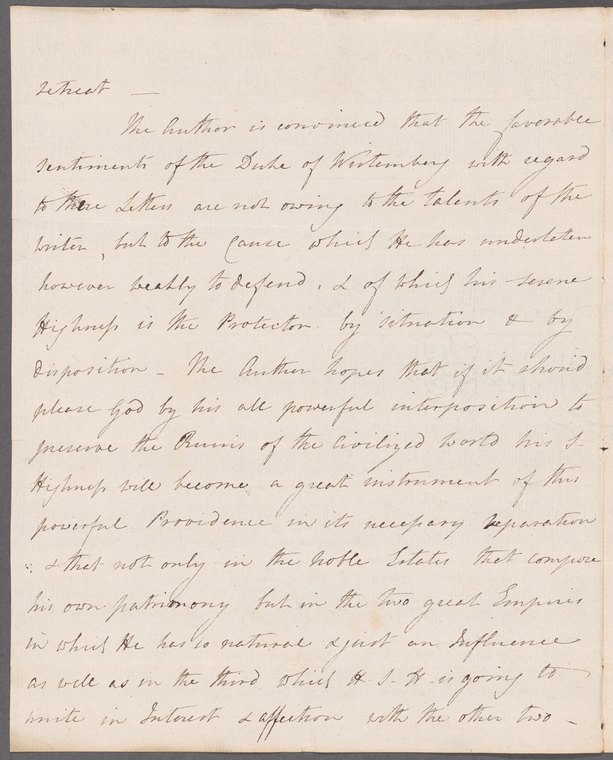 retreat —
The Author is convinced that the favorable
sentiments of the Duke of Wirtemberg with regard
to these Letters are not owing to the talents of the
writer, but to the Cause which He has undertaken
however weakly to defend, & of which his serene
Highness is the Protector by situation & by
disposition – The Author hopes that if it should
please God by his all powerful interposition to
preserve the Ruins of the Civilized World his S–
Highness will become a great instrument of this
powerful Providence in its necessary reparation
& that not only in the noble Estates that compose
his own patrimony but in the two great Empires
in which He has so natural & just an Influence
as well as in the third which H– S– H– is going to
unite in Interest & affection with the other two –